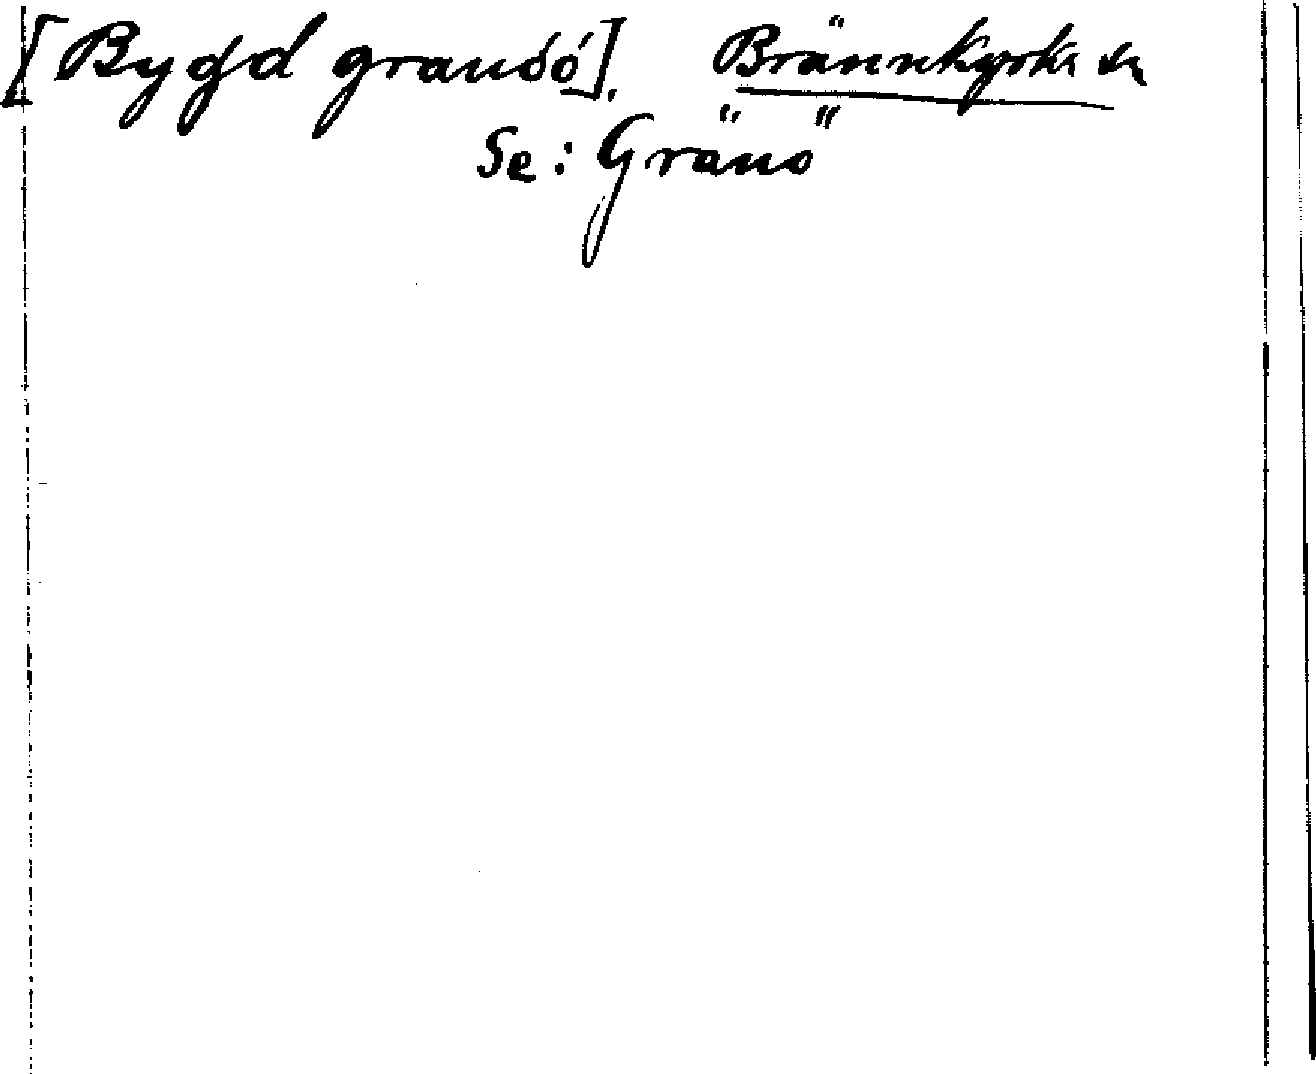 [Bygd grandö]. Brännkyrka sn
Se: Gränö